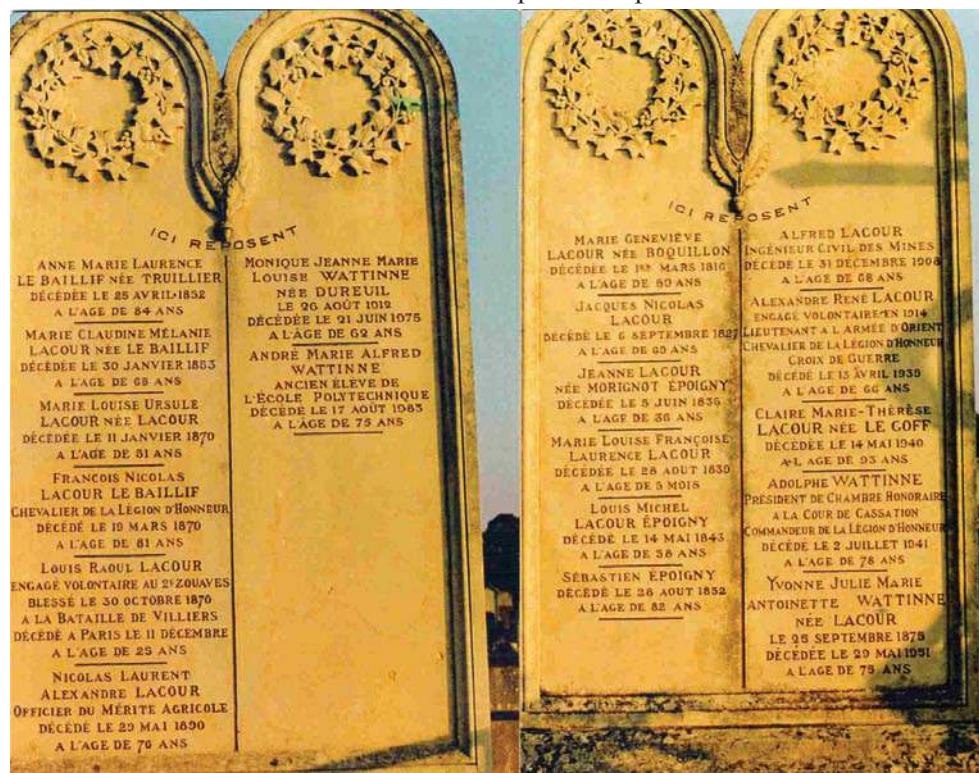 ICI REPOSENT
ANNE MARIE LAURENCE
LE BAILLIF NÉE TRUILLIER
DÉCÉDÉE LE 25 AVRIL 1852
A L'AGE DE 84 ANS
MARIE CLAUDINE MÉLANIE
LACOUR NÉE LE BAILLIF
DÉCÉDÉE LE 30 JANVIER 1863
A L'AGE DE 68 ANS
MARIE LOUISE URSULE
LACOUR NÉE LACOUR
DÉCÉDÉE LE 11 JANVIER 1870
A L'AGE DE 51 ANS
FRANÇOIS NICOLAS
LACOUR LE BAILLIF
CHEVALIER DE LA LÉGION D'HONNEUR
DÉCÉDÉ LE 19 MARS 1870
A L'AGE DE 81 ANS
LOUIS RAOUL LACOUR
ENGAGÉ VOLONTAIRE AU 2E ZOUAVES
BLESSÉ LE 30 OCTOBRE 1870
A LA BATAILLE DE VILLIERS
DÉCÉDÉ A PARIS LE 11 DÉCEMBRE
A L'AGE DE 25 ANS
NICOLAS LAURENT
ALEXANDRE LACOUR
OFFICIER DU MÉRITE AGRICOLE
DÉCÉDÉ LE 29 MAI 1890
A L'AGE DE 76 ANS
MONIQUE JEANNE MARIE
LOUISE WATTINNE
NÉE DUREUIL
LE 26 AOÛT 1912
DÉCÉDÉE LE 21 JUIN 1975
A L'ÂGE DE 62 ANS
ANDRÉ MARIE ALFRED
WATTINNE
ANCIEN ÉLÈVE DE
L'ÉCOLE POLYTECHNIQUE
DÉCÉDÉ LE 17 AOÛT 1983
A L'ÂGE DE 75 ANS
ICI REPOSENT
MARIE GENEVIÈVE
LACOUR NÉE BOQUILLON
DÉCÉDÉE LE 1ER MARS 1816
A L'AGE DE 89 ANS
JACQUES NICOLAS
LACOUR
DÉCÉDÉ LE 6 SEPTEMBRE 1827
A L'AGE DE 69 ANS
JEANNE LACOUR
NÉE MORIGNOT ÉPOIGNY
DÉCÉDÉE LE 5 JUIN 1836
A L'AGE DE 36 ANS
MARIE LOUISE FRANÇOISE
LAURENCE LACOUR
DÉCÉDÉE LE 28 AOUT 1839
A L'AGE DE 5 MOIS
LOUIS MICHEL
LACOUR ÉPOIGNY
DÉCÉDÉ LE 14 MAI 1843
A L'AGE DE 58 ANS
SÉBASTIEN ÉPOIGNY
DÉCÉDÉ LE 26 AOUT 1852
A L'AGE DE 82 ANS
ALFRED LACOUR
INGÉNIEUR CIVIL DES MINES
DÉCÉDÉ LE 31 DÉCEMBRE 1908
A L'AGE DE 68 ANS
ALEXANDRE RENÉ LACOUR
ENGAGÉ VOLONTAIRE EN 1914
LIEUTENANT A L'ARMÉE D'ORIENT
CHEVALIER DE LA LÉGION D'HONNEUR
CROIX DE GUERRE
DÉCÉDÉ LE 13 AVRIL 1939
A L'AGE DE 66 ANS
CLAIRE MARIE-THÉRÈSE
LACOUR NÉE LE GOFF
DÉCÉDÉE LE 14 MAI 1940
A L'AGE DE 93 ANS
ADOLPHE WATTINNE
PRÉSIDENT DE CHAMBRE HONORAIRE
A LA COUR DE CASSATION
COMMANDEUR DE LA LÉGION D'HONNEUR
DÉCÉDÉ LE 2 JUILLET 1941
A L'AGE DE 78 ANS
YVONNE JULIE MARIE
ANTOINETTE WATTINNE
NÉE LACOUR
LE 25 SEPTEMBRE 1875
DÉCÉDÉE LE 29 MAI 1951
A L'AGE DE 75 ANS